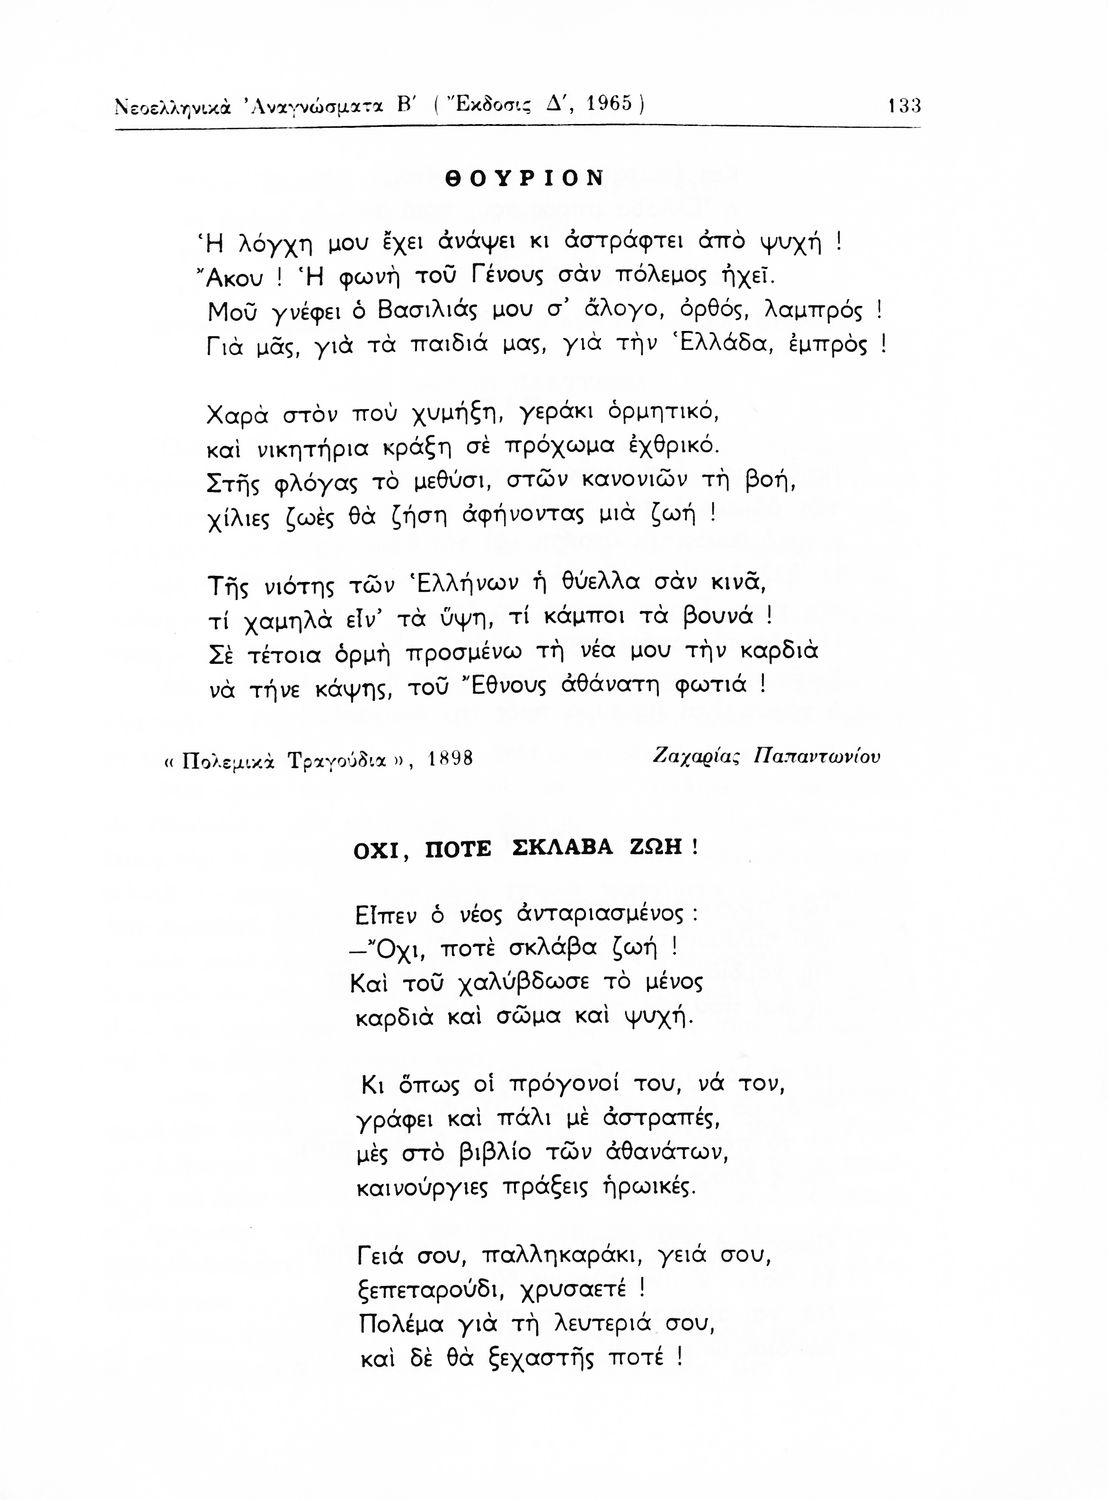 Νεοελληνικὰ Ἀναγνώσματα Β΄ ( Ἔκδοσις Δ΄, 1965 ) 133
ΘΟΥΡΙΟΝ
Ἡ λόγχη μου ἔχει ἀνάψει κι ἀστράφτει ἀπὸ ψυχή !
Ἄκου ! Ἡ φωνὴ τοῦ Γένους σὰν πόλεμος ἠχεῖ.
Μοῦ γνέφει ὁ Βασιλιάς μου σ’ ἄλογο, ὀρθός, λαμπρός !
Γιὰ μᾶς, γιὰ τὰ παιδιά μας, γιὰ τὴν Ἑλλάδα, ἐμπρὸς !
Χαρὰ στὸν ποὺ χυμήξη, γεράκι ὁρμητικό,
καὶ νικητήρια κράξη σὲ πρόχωμα ἐχθρικό.
Στῆς φλόγας τὸ μεθύσι, στῶν κανονιῶν τὴ βοή,
χίλιες ζωὲς θὰ ζήση ἀφήνοντας μιὰ ζωή !
Τῆς νιότης τῶν Ἑλλήνων ἡ θύελλα σὰν κινᾶ,
τί χαμηλὰ εἶν’ τὰ ὕψη, τί κάμποι τὰ βουνά !
Σὲ τέτοια ὁρμὴ προσμένω τὴ νέα μου τὴν καρδιὰ
νὰ τήνε κάψης, τοῦ Ἔθνους ἀθάνατη φωτιά !
« Πολεμικὰ Τραγούδια », 1898 Ζαχαρίας Παπαντωνίου
ΟΧΙ, ΠΟΤΕ ΣΚΛΑΒΑ ΖΩΗ !
Εἶπεν ὁ νέος ἀνταριασμένος :
—Ὄχι, ποτὲ σκλάβα ζωή !
Καὶ τοῦ χαλύβδωσε τὸ μένος
καρδιὰ καὶ σῶμα καὶ ψυχή.
Κι ὅπως οἱ πρόγονοί του, νά τον,
γράφει καὶ πάλι μὲ ἀστραπές,
μὲς στὸ βιβλίο τῶν ἀθανάτων,
καινούργιες πράξεις ἡρωικές.
Γειά σου, παλληκαράκι, γειά σου,
ξεπεταρούδι, χρυσαετέ !
Πολέμα γιὰ τὴ λευτεριά σου,
καὶ δὲ θὰ ξεχαστῆς ποτέ !